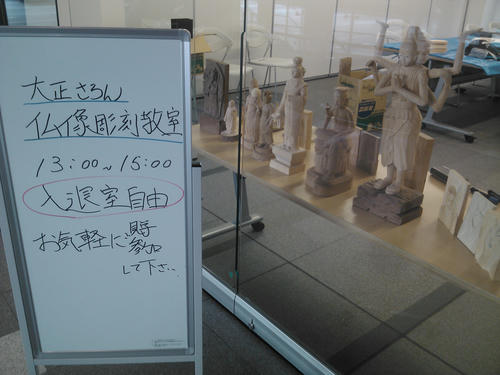 大正さろん
仏像彫刻教室
13:00~15:00
入退室自由
お気軽に
参加
して下さい